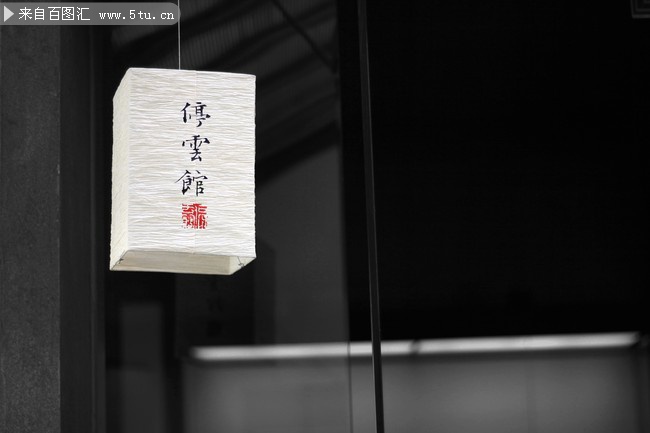 来自百图汇 www.5tu.cn
停雲館